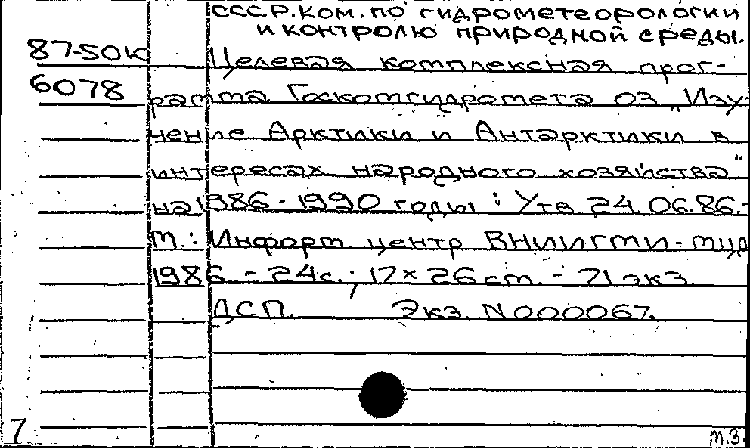 СССР. КОМ. ПО ГИДРОМЕТЕОРОЛОГИИ
И КОНТРОЛЮ ПРИРОДНОЙ СРЕДЫ.
87-50К Целевая комплексная прог-
6078 рамма Госкомгидромета 03 „Изу
чение Арктики и Антарктики в
интересах народного хозяйства"
на 1986-1990 годы: Утв 24.06.86.-
М.: Информ центр ВНИИГМИ-МЦД
1986 - 24с.; 17×26см. - 71 экз.
ДСП. Экз. N000067.
7
М.З.